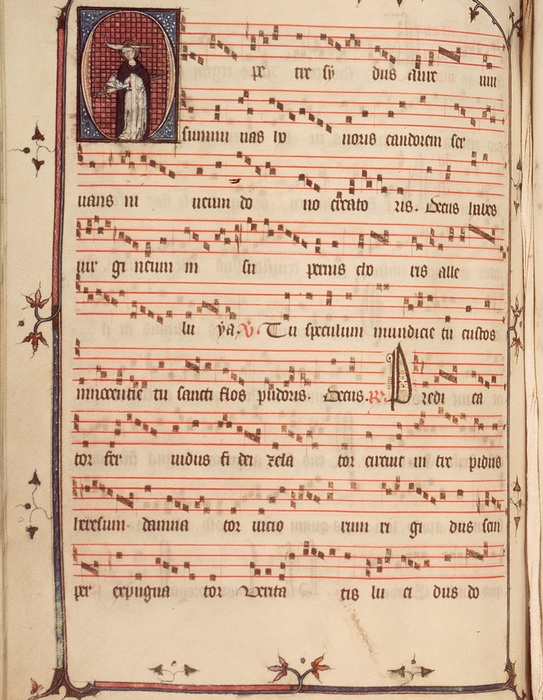 O petre sy dus aure um
summum vas vo noris candorem ser
uans in ueum do no creato ris. Decus
uir gi neum in su pernis cho ris alle
lu ya. V Tu speculum mundicie tu custos
innocentie tu sancti flos pudoris. Decus. R Predi ca
tor fer uidus fi dei zela tor circuit in tre pidus
heresum damna tor uicio rum ri gi dus sen
per expugna tor Verita tis lu ci dus do